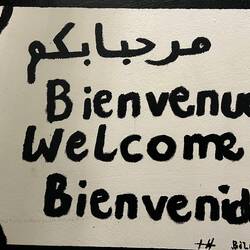 مرحبابكم
Bienvenu
Welcome
Bienvenid